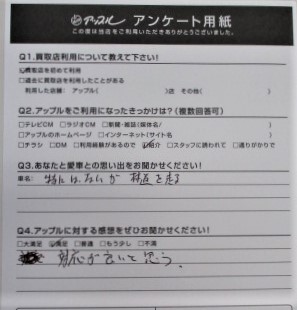 アップル アンケート用紙
この度は当店をご利用いただきありがとうございました。
Q1.買取店利用について教えて下さい!
☑買取店を初めて利用
□過去に買取店を利用したことがある
利用した店舗: アップル( )店 その他( )
Q2.アップルをご利用になったきっかけは?(複数回答可)
□テレビCM □ラジオCM □新聞・雑誌(媒体名/ )
□アップルのホームページ □インターネット(サイト名 )
□チラシ □DM □利用経験があるので ☑紹介 □スタッフに誘われて □通りがかりで
Q3.あなたと愛車との思い出をお聞かせください!
車名: 特にはないが 林道を走る
Q4.アップルに対する感想をぜひお聞かせください!
□大満足 ☑満足 □普通 □もう少し □不満
対応が良いと思う。